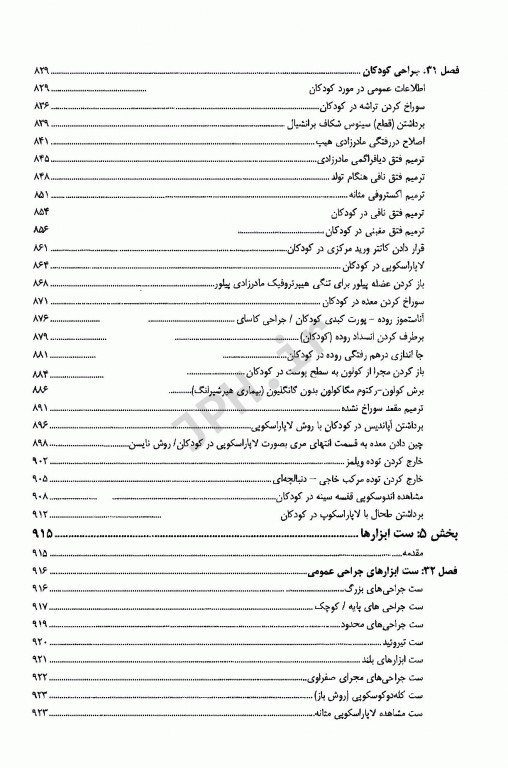 فصل ۳۱. جراحی کودکان ۸۲۹
اطلاعات عمومی در مورد کودکان ۸۲۹
سوراخ کردن تراشه در کودکان ۸۳۶
برداشتن (قطع) سینوس شکاف برانشیال ۸۳۹
اصلاح دررفتگی مادرزادی هیپ ۸۴۱
ترمیم فتق دیافراگمی مادرزادی ۸۴۵
ترمیم فتق نافی هنگام تولد ۸۴۸
ترمیم اکستروفی مثانه ۸۵۱
ترمیم فتق نافی در کودکان ۸۵۴
ترمیم فتق مغبنی در کودکان ۸۵۶
قرار دادن کاتتر ورید مرکزی در کودکان ۸۶۱
لاپاراسکوپی در کودکان ۸۶۴
باز کردن عضله پیلور برای تنگی هیپرتروفیک مادرزادی پیلور ۸۶۸
سوراخ کردن معده در کودکان ۸۷۱
آناستموز روده – پورت کبدی کودکان / جراحی کاسای ۸۷۶
برطرف کردن انسداد روده (کودکان) ۸۷۹
جا اندازی درهم رفتگی روده در کودکان ۸۸۱
باز کردن مجرا از کولون به سطح پوست در کودکان ۸۸۴
برش کولون-رکتوم مگاکولون بدون گانگلیون (بیماری هیرشپرانگ) ۸۸۶
ترمیم مقعد سوراخ نشده ۸۹۱
برداشتن آپاندیس در کودکان با روش لاپاراسکوپی ۸۹۶
چین دادن معده به قسمت انتهای مری بصورت لاپاراسکوپی در کودکان/ روش نایسن ۸۹۸
خارج کردن توده ویلمز ۹۰۲
خارج کردن توده مرکب خاجی – دنبالچه‌ای ۹۰۵
مشاهده اندوسکوپی قفسه سینه در کودکان ۹۰۸
برداشتن طحال با لاپاراسکوپ در کودکان ۹۱۲
بخش ۵: ست ابزارها ۹۱۵
مقدمه ۹۱۵
فصل ۳۲: ست ابزارهای جراحی عمومی ۹۱۶
ست جراحی‌های بزرگ ۹۱۶
ست جراحی های پایه / کوچک ۹۱۷
ست جراحی‌های محدود ۹۱۹
ست تیروئید ۹۲۰
ست ابزارهای بلند ۹۲۱
ست جراحی‌های مجرای صفراوی ۹۲۲
ست کله‌دوکوسکوپی (روش باز) ۹۲۳
ست مشاهده لاپاراسکوپی مثانه ۹۲۳
JPH.ir